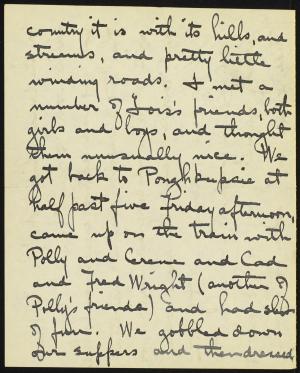 country it is with its hills, and
streams, and pretty little
winding roads. I met a
number of Lois's friends, both
girls and boys, and thought
them unusually nice. We
got back to Poughkeepsie at
half past five Friday afternoon,
came up on the train with
Polly and Creme and Cad
and Fred Wright (another of
Polly's friends) and had
of fun. We gobbled down
our suppers and then dressed